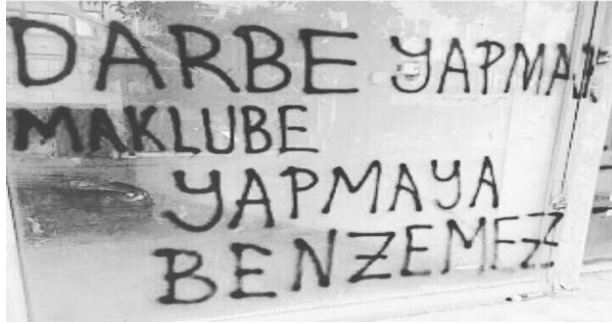 DARBE YAPMAK
MAKLUBE
YAPMAYA
BENZEMEZ